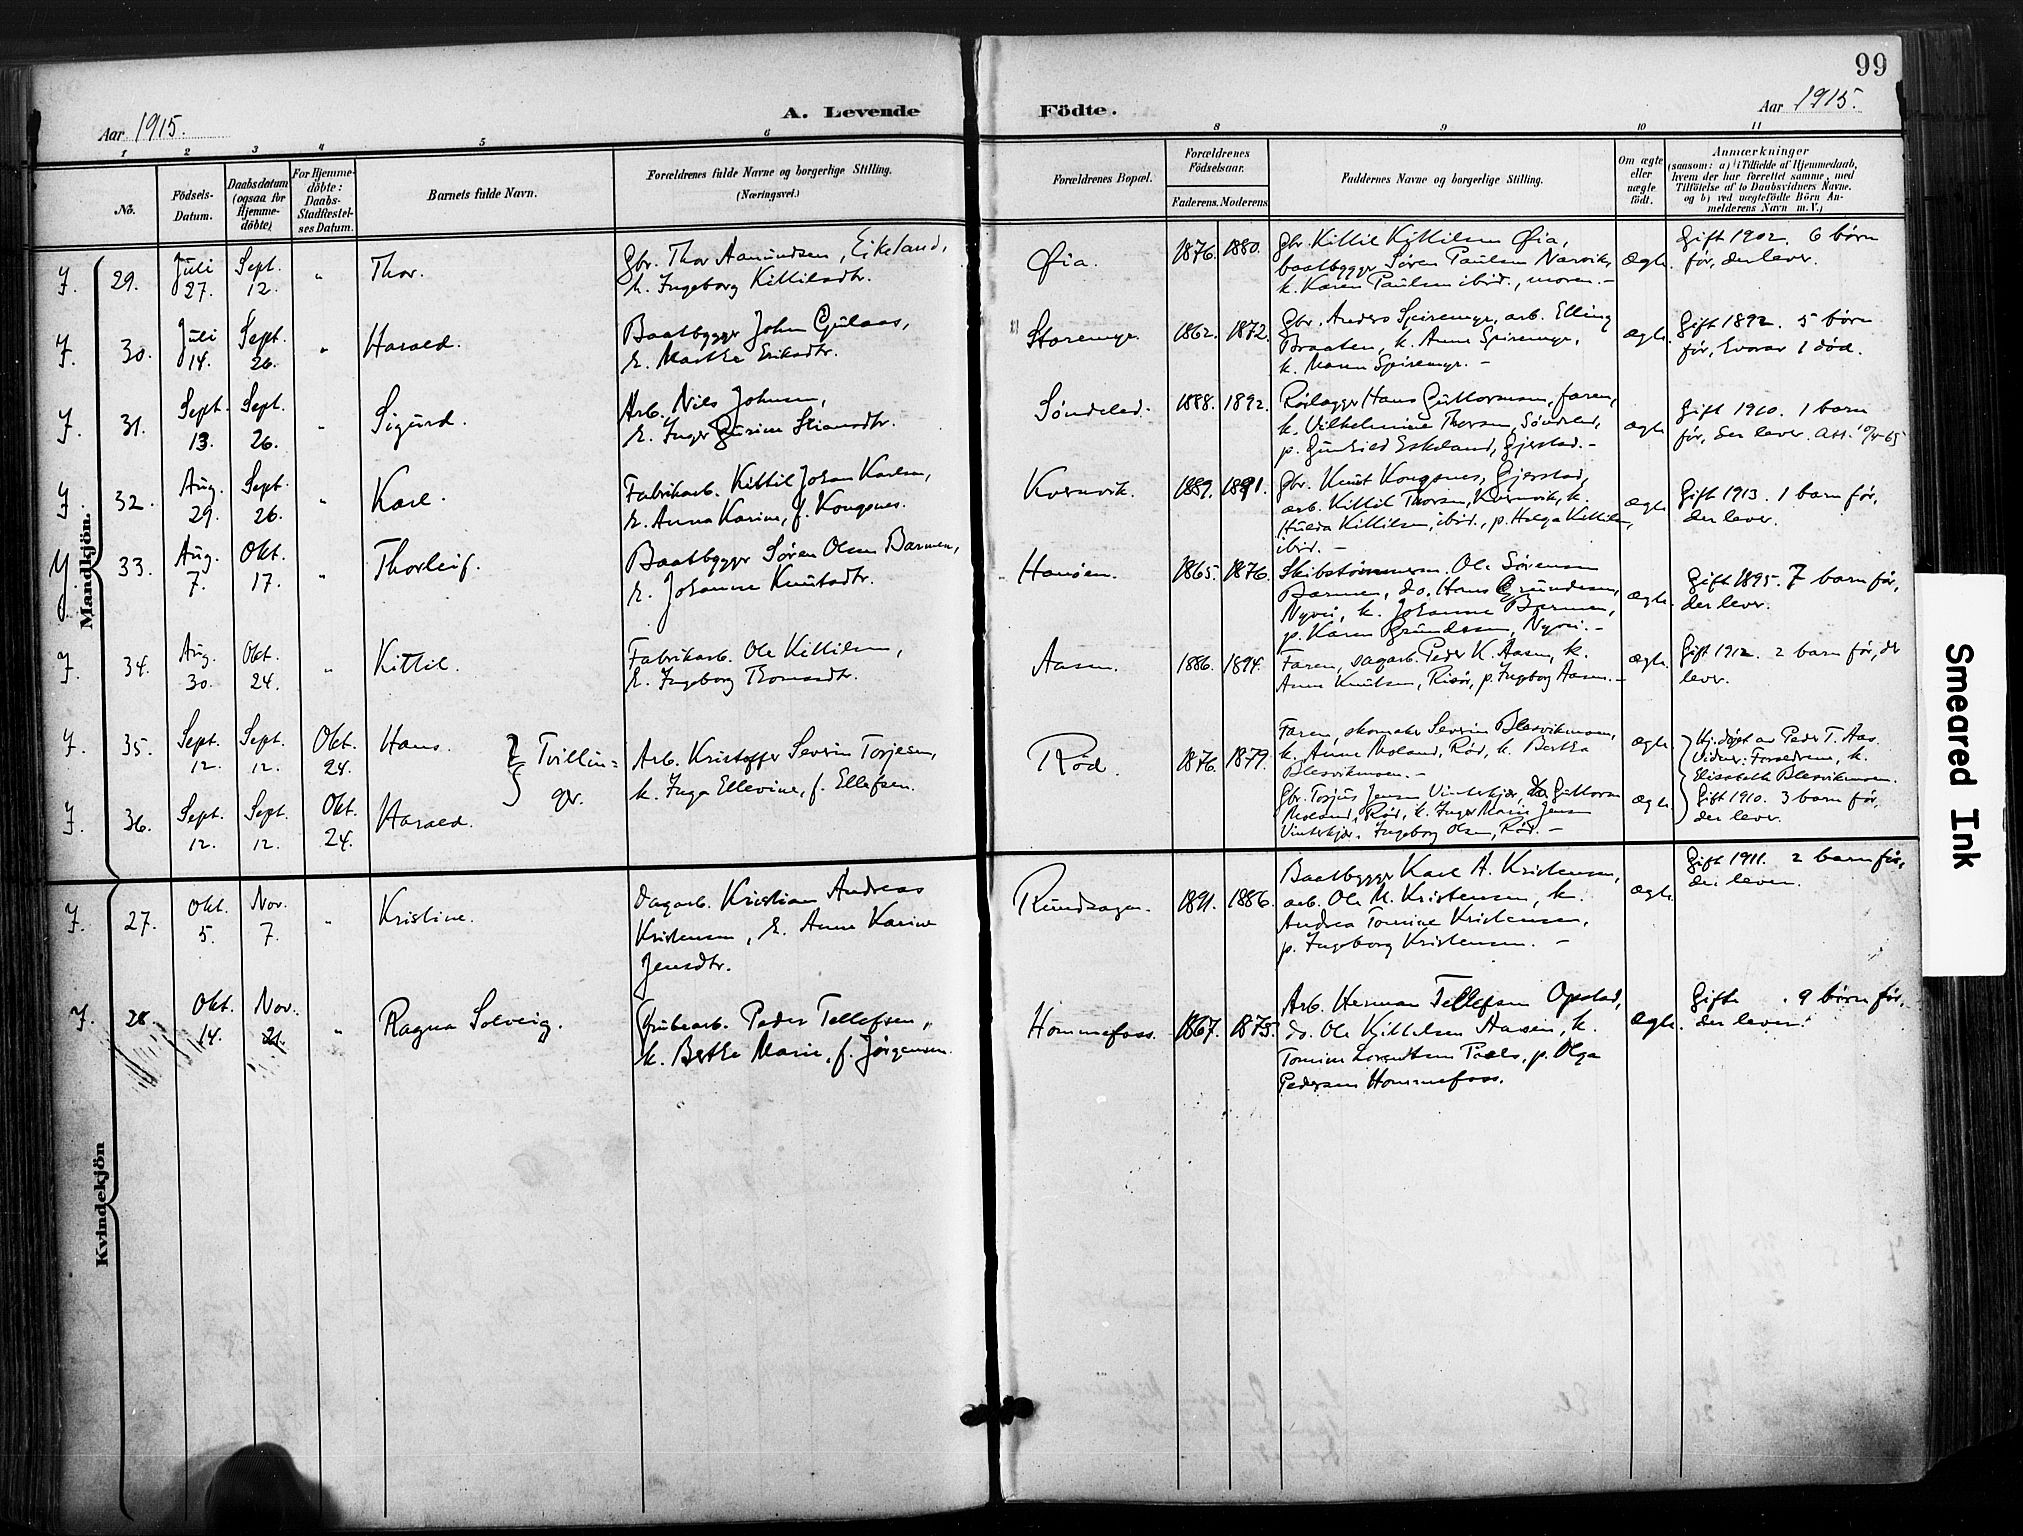 99
Aar 1915.
A. Levende Födte.
Aar 1915.
1 2 3 4 5 6 8 9 10 11
No.
Födsels-Datum.
Daabsdatum (ogsaa for Hjemme-döbte)
For Hjemme-döbte: Daabs-Stadfæstel-ses Datum.
Barnets fulde Navn.
Forældrenes fulde Navne og borgerlige Stilling.
(Næringsvei.)
Forældrenes Bopæl.
Forældrenes Födselsaar.
Faderens. Moderens.
Faddernes Navne og borgerlige Stilling.
Om ægte eller uægte födt.
Anmærkninger
(saasom: a) i Tilfælde af Hjemmedaab,
hvem der har forrettet samme, med
Tilföielse af to Daabsvidners Navne.
og b) ved uægtefödte Börn An-
melderens Navn m. V.)
Mandkjön.
J. 29. Juli 27. Sept. 12. " Thor.
Gbr. Thor Aamundsen, Eikeland,
k. Ingeborg Kittilsdtr.
Øia. 1876. 1880.
Gbr. Kittil Kittilsen Øia,
baatbygger Søren Paulsen Narvik,
k. Karen Paulsen ibid., moren. -
ægte.
Gift 1902. 6 børn
før, der lever.
J. 30. Juli 14. Sept. 26. " Harald.
Baatbygger John Gulaas,
k. Marthe Eriksdtr.
Storemyr. 1862. 1872.
Gbr. Anders Speiremyr, arb. Elling
Braaten, k. Anne Speiremyr,
k. Maren Speiremyr. -
ægte.
Gift 1892. 5 børn
før, hvorav 1 død.
J. 31. Sept. 13. Sept. 26. " Sigurd.
Arb. Nils Johnsen,
k. Inger Gurine
Søndeled. 1888. 1892.
Rørlægger Hans Guttormsen, faren,
k. Vilhelmine Thorsen, Søndeled,
p. Gunhild Eskeland, Gjerstad. -
ægte
Gift 1910. 1 barn
før, der lever.
J. 32. Aug. 29. Sept. 26. " Karl.
Fabrikarb. Kittil Johan Karlsen,
k. Anna Karine, f. Kongsnes.
Kvernvik. 1889. 1891.
Gbr. Knut Kongsnes, Gjerstad,
arb. Kittil Thorsen, Kvernvik, k.
Hulda Kittilsen, ibid., p. Helga Kittilsen,
ibid. -
ægte
Gift 1913. 1 barn før,
der lever.
J 33. Aug. 7. Okt. 17. " Thorleif.
Baatbygger Søren Olsen Barmen,
k. Johanne Knutsdtr.
Hanøen. 1865. 1876.
Skibstømmerm. Ole Sørensen
Barmen, do. Hans Grundesen,
Nyvei, k. Johanne Barmen,
p. Karen Grundesen, Nyvei. -
ægte.
Gift 1895. 7 barn før,
der lever.
J. 34. Aug. 30. Okt. 24. " Kittil.
Fabrikarb. Ole Kittilsen,
k. Ingeborg Thomasdtr.
Aasen. 1886. 1894.
Faren, sagarb. Peder K. Aasen, k.
Anne Knutsen, Risør, p. Ingeborg Aasen. -
ægte.
Gift 1912. 2 barn før, der
lever.
J. 35. Sept. 12. Sept. 12. Okt. 24. Hans. } Tvillin-
Arb. Kristoffer Severin Torjesen,
k. Inga Ellevine, f. Ellefsen.
Rød. 1876. 1879.
Faren, skomaker Severin Blesvikmoen,
k. Anne Moland, Rød, k. Berthe
Blesvikmoen. -
ægte.
Hj.døpt av Peder T. Aas.
Vidner: Forældrene, k.
Elisabeth Blesvikmoen.
J. 36. Sept. 12. Sept. 12. Okt. 24. Harald. ger.
Gbr. Torjus Jensen Vinterkjær, do Guttorm
Moland, Rød, k. Inger Marie Jensen
Vinterkjær, Ingeborg Olsen, Rød. -
ægte.
Gift 1910. 3 barn før,
der lever.
Kvindekjön
J. 27. Okt. 5. Nov. 7. " Kristine.
Dagarb. Kristian Andreas
Kristensen, k. Anne Karine
Jensdtr.
Rundsagen. 1891. 1886.
Baatbygger Karl A. Kristensen,
arb. Ole M. Kristensen, k.
Andrea Tomine Kristensen,
p. Ingeborg Kristensen. -
ægte.
Gift 1911. 2 barn før,
der lever.
J. 28. Okt. 14. Nov. 21. " Ragna Solveig.
Grubearb. Peder Tellefsen,
k. Berthe Marie, f. Jørgensen.
Hommefoss. 1867. 1873.
Arb. Herman Tellefsen Opstad,
do. Ole Kittilsen Aasen, k.
Tomine Lorentsen, p. Olga
Pedersen Hommefoss.
ægte.
Gift . 9 børn før,
der lever.
Smeared Ink